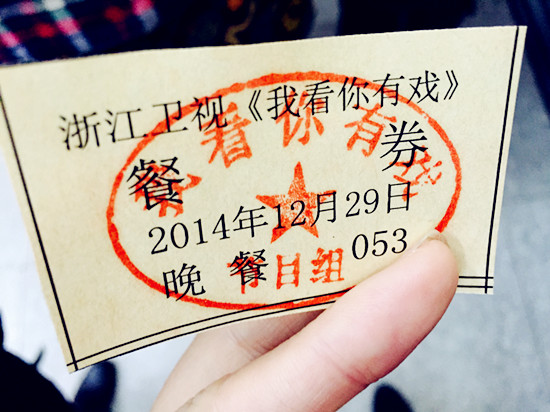 浙江卫视《我看你有戏》
餐 券
2014年12月29日
晚 餐 053
我看你有戏
节目组